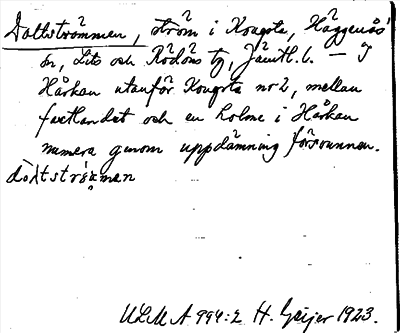 Daltströmmen, ström i Kougsta, Häggenås'
sn, Lits och Rödöns tg, Jämtl. l. — I
Hårkan utanför Kougsta nr 2, mellan
fastlandet och en holme i Hårkan
numera genom uppdämning försvunnen.
ULMA 994:2 H. Geijer 1923.